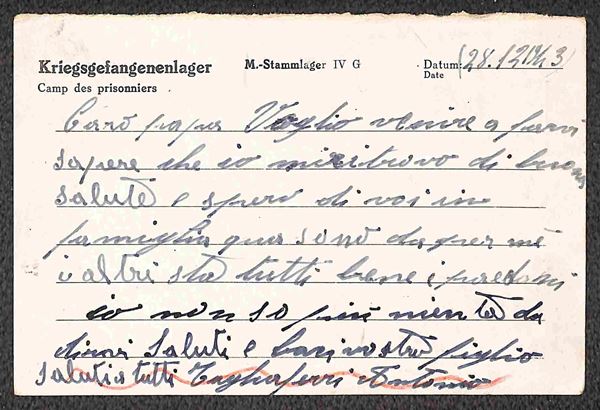 Kriegsgefangenenlager M.-Stammlager IV G Datum: (28.12.43)
Camp des prisonniers Date
Caro papa Voglio venire a farvi
sapere che io mi ritrovo di buona
salute e spero di voi in
famiglia qua sono da per me
i altri sta tutti bene i paesani
io non so più niente da
dirvi Saluti e baci vostro figlio
Saluti a tutti Tagliaferri Antonio